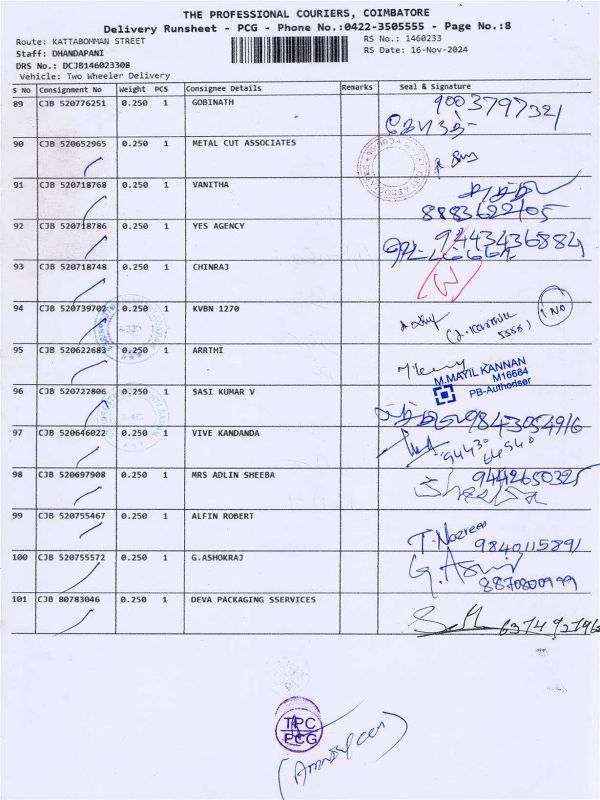 THE PROFESSIONAL COURIERS, COIMBATORE
Delivery Runsheet - PCG - Phone No.:0422-3505555 - Page No.:8
Route: KATTABOMMAN STREET RS No.: 1460233
Staff: DHANDAPANI RS Date: 16-Nov-2024
DRS No.: DCJB146023308
Vehicle: Two Wheeler Delivery
S No Consignment No Weight PCS Consignee Details Remarks Seal & Signature
89 CJB 520776251 0.250 1 GOBINATH 9003797321
90 CJB 520652965 0.250 1 METAL CUT ASSOCIATES
91 CJB 520718768 0.250 1 VANITHA
8883622105
92 CJB 520718786 0.250 1 YES AGENCY 9443436884
93 CJB 520718748 0.250 1 CHINRAJ
94 CJB 520739702 0.250 1 KVBN 1270 1 NO
5558
95 CJB 520622683 0.250 1 ARRTHI
M.MAYIL KANNAN
M16684
PB-Authoriser
96 CJB 520722806 0.250 1 SASI KUMAR V
9843054916
97 CJB 520646022 0.250 1 VIVE KANDANDA
98 CJB 520697908 0.250 1 MRS ADLIN SHEEBA 9442650325
99 CJB 520755467 0.250 1 ALFIN ROBERT T. Nazreen
9840115891
100 CJB 520755572 0.250 1 G.ASHOKRAJ
8870800999
101 CJB 80783046 0.250 1 DEVA PACKAGING SSERVICES
TPC
PCG